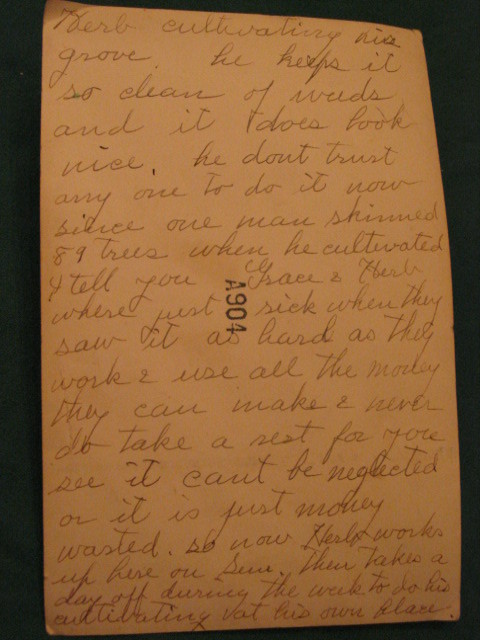 Herb cultivating his
grove. he keeps it
so clean of weeds
and it does look
nice. he dont trust
any one to do it now
since one man skinned
89 trees when he cultivated
I tell you Grace & Herb
where just sick when they
A904
saw it as hard as they
work & use all the money
they can make & never
do take a rest for you
see it cant be neglected
or it is just money
wasted. so now Herb works
up here on Sun. then takes a
day off during the week to do his
cultivating at his own place.